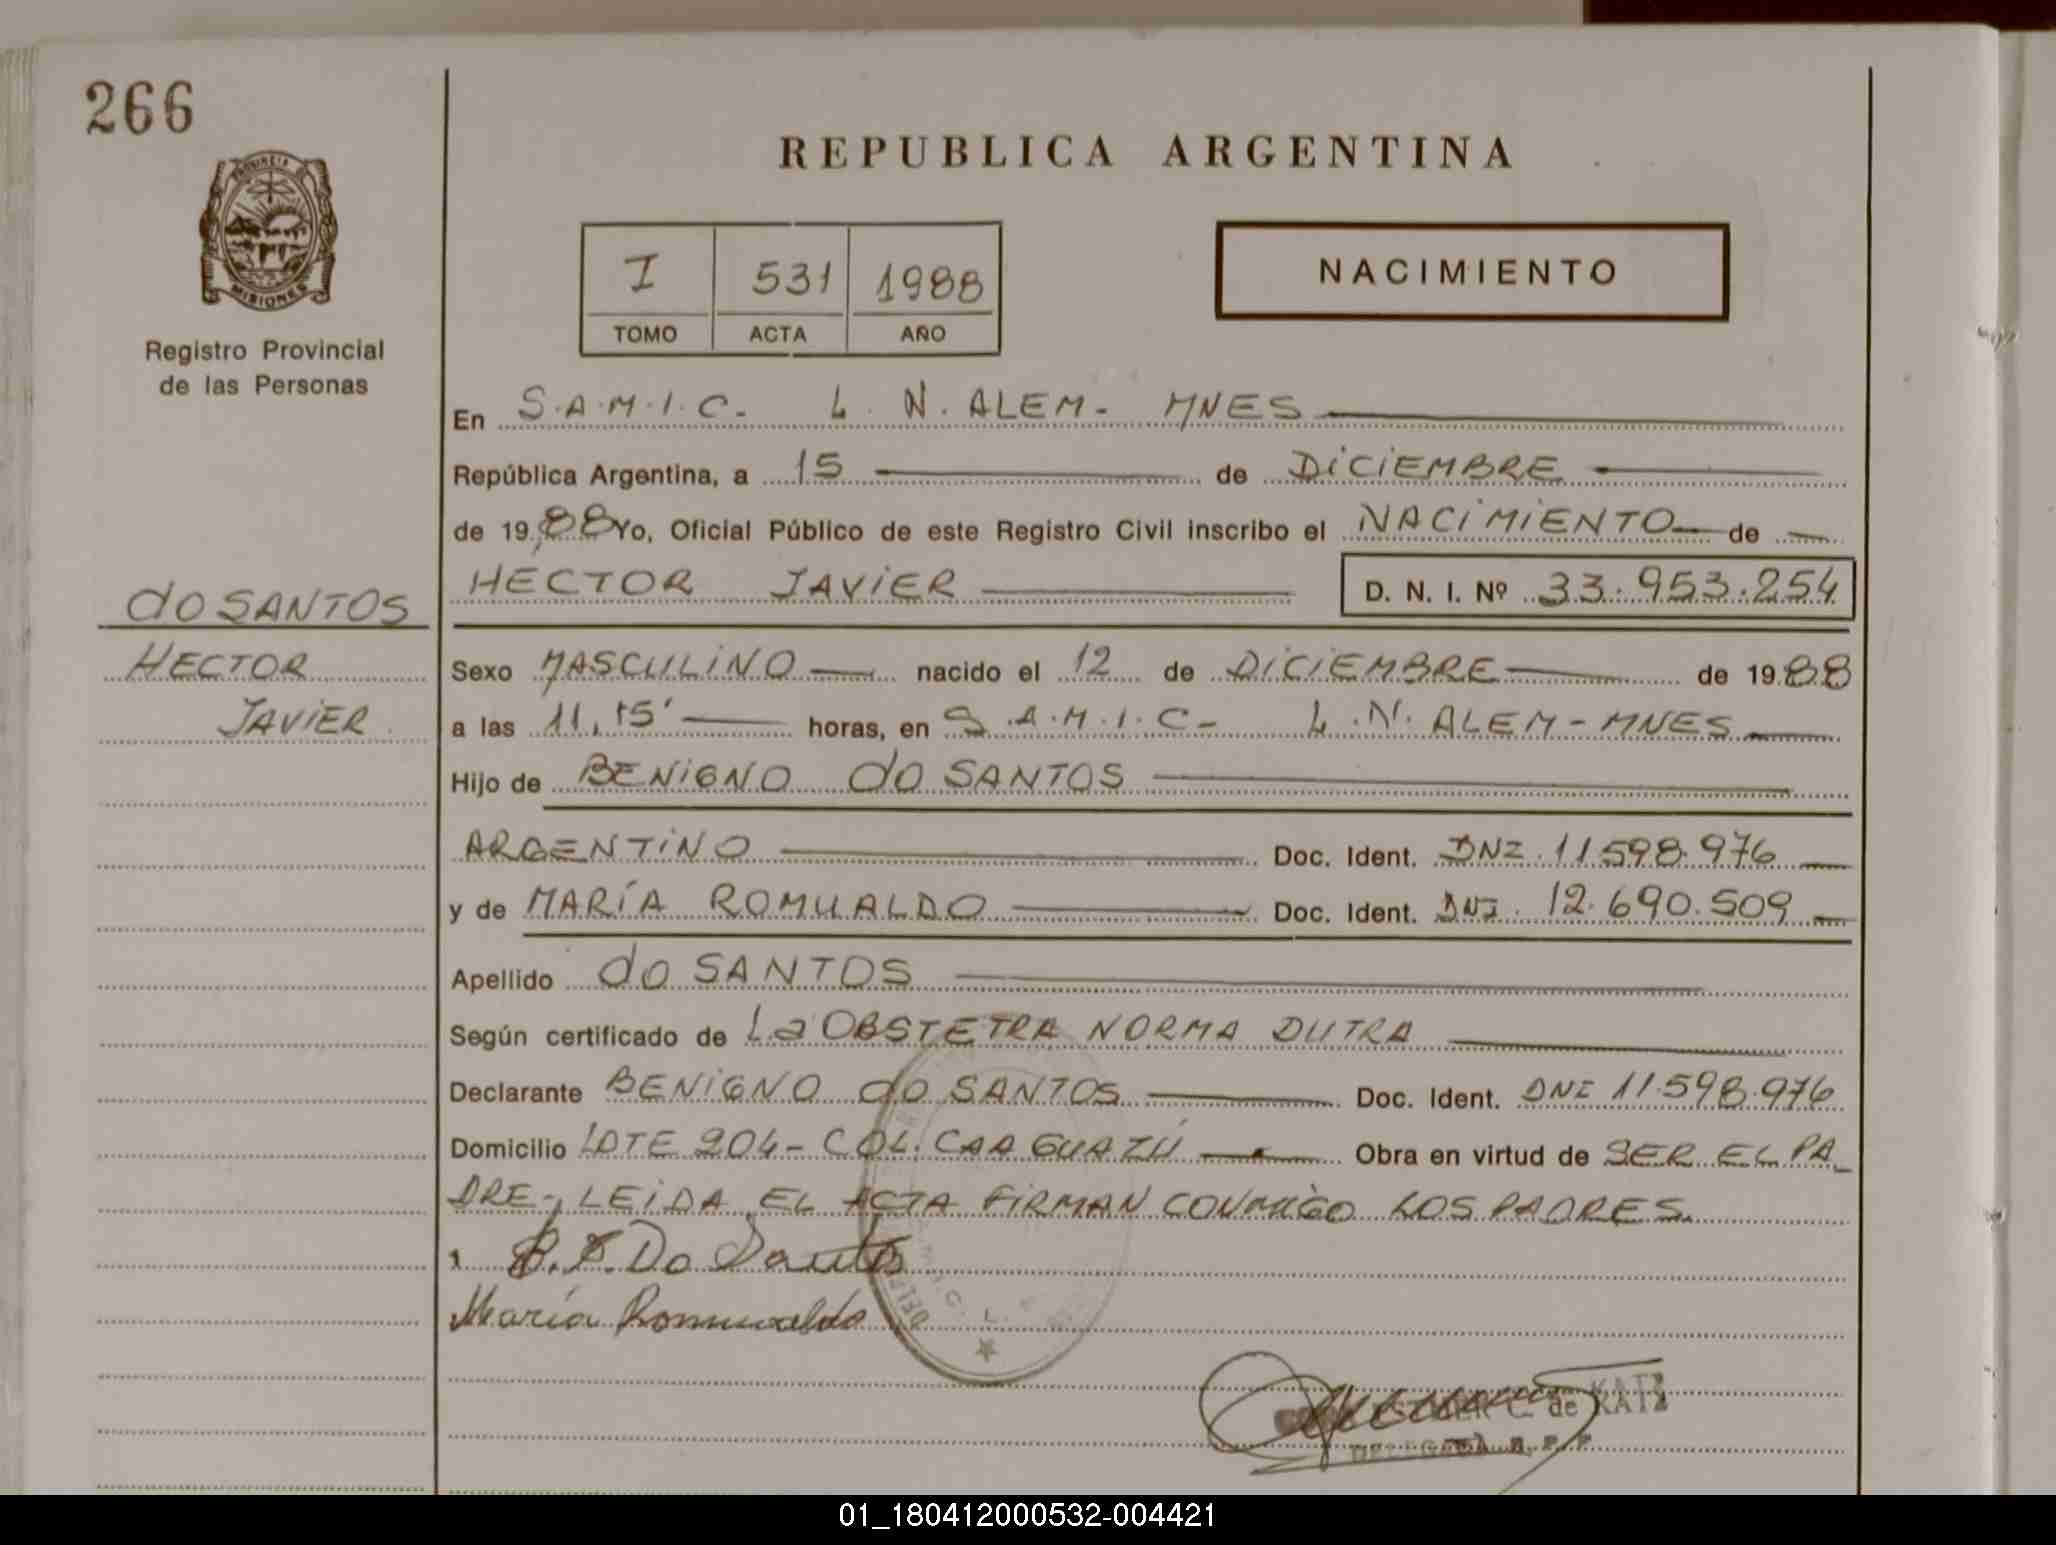 266
PROVINCIA D
MISIONES
Registro Provincial
de las Personas
REPUBLICA ARGENTINA
I 531 1988
TOMO ACTA AÑO
NACIMIENTO
En S.A.M.I.C. L. N. ALEM- MNES
República Argentina, a 15 de DICIEMBRE
de 1988 Yo, Oficial Público de este Registro Civil inscribo el NACIMIENTO de
HECTOR JAVIER D. N. I. Nº 33.953.254
do SANTOS
HECTOR
JAVIER
Sexo MASCULINO nacido el 12 de DICIEMBRE de 1988
a las 11,15' horas, en S.A.M.I.C- L.N. ALEM-MNES
Hijo de BENIGNO do SANTOS
ARGENTINO Doc. Ident. DNI.11598.976
y de MARÍA ROMUALDO Doc. Ident. DNI. 12.690.509
Apellido do SANTOS
Según certificado de La OBSTETRA NORMA DUTRA
Declarante BENIGNO do SANTOS Doc. Ident. DNI 11.598.976
Domicilio LOTE 204- COL. CAA GUAZÚ Obra en virtud de SER EL PA_
DRE-, LEIDA EL ACTA FIRMAN CONMIGO LOS PADRES.
B. Do Santos
María Romualdo
C. de KATZ
DELEGADA R.P.P.
01_180412000532-004421